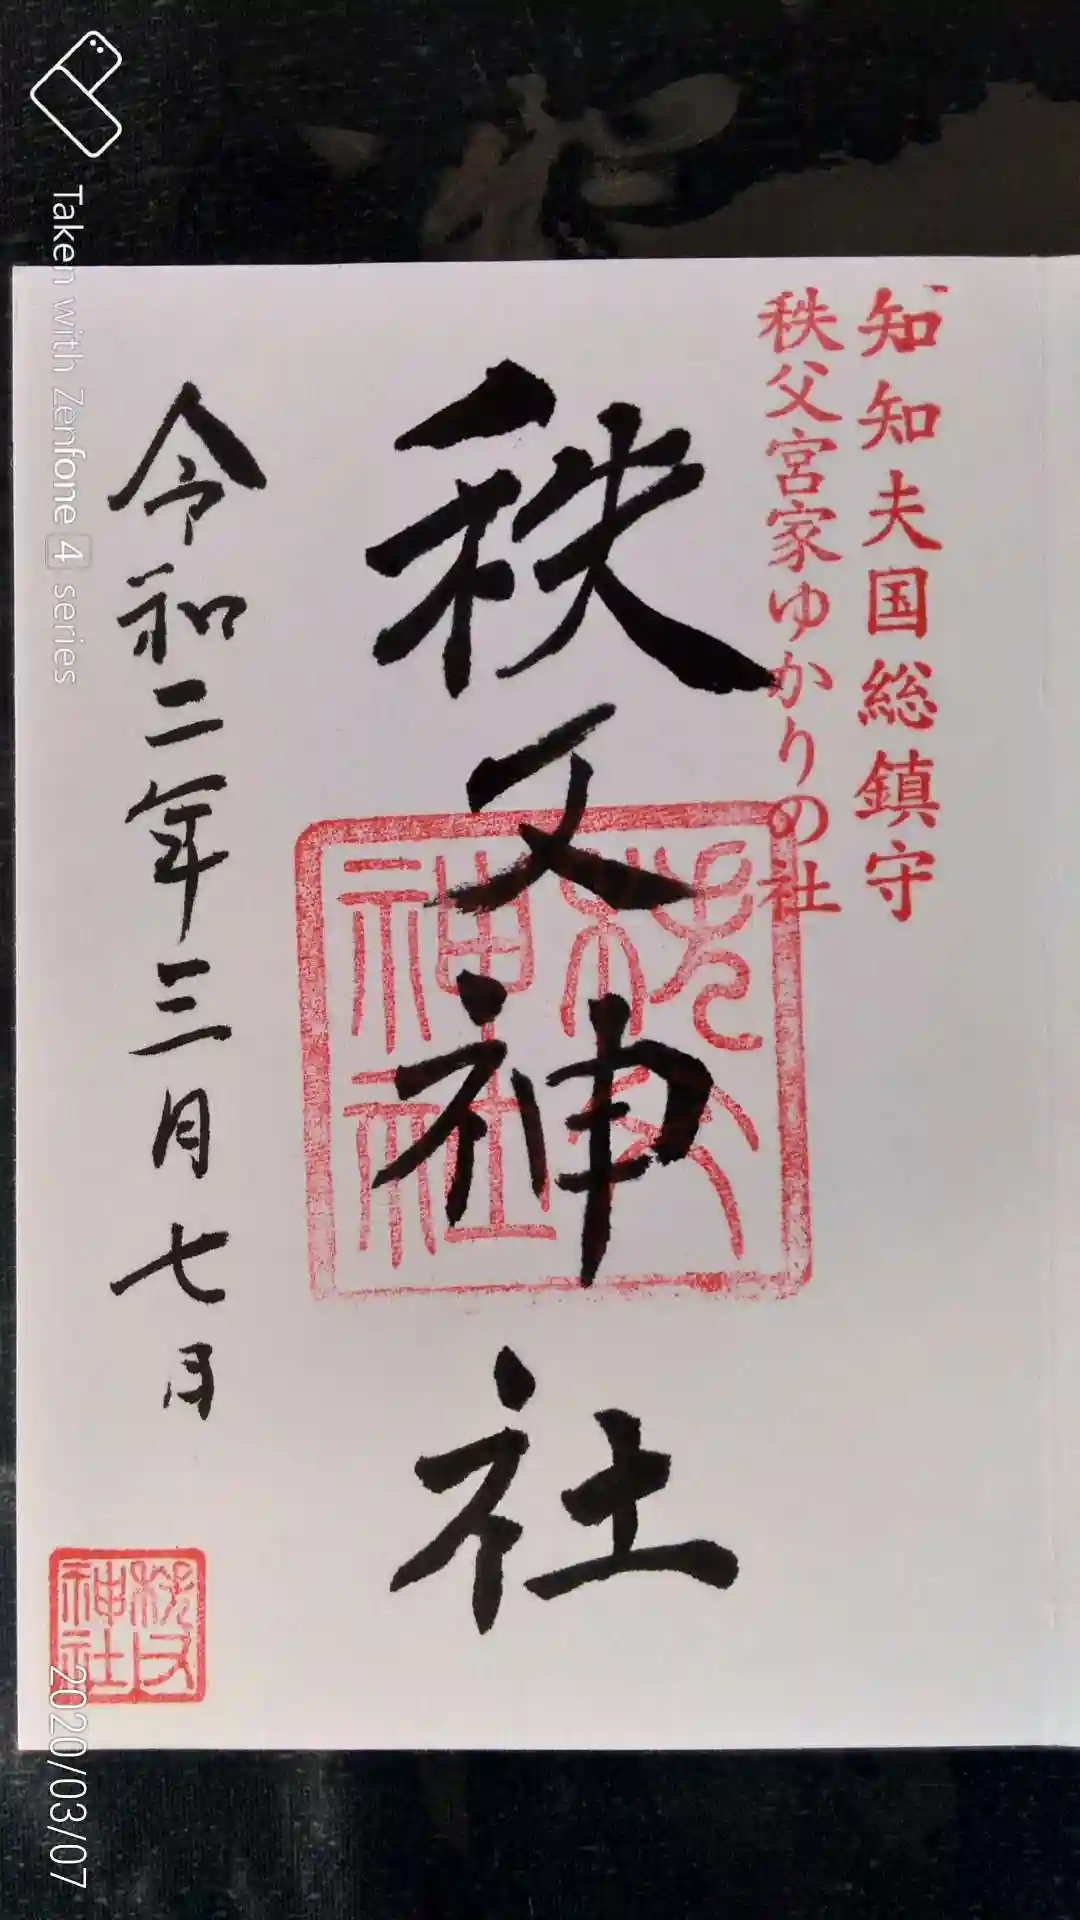 知知夫国総鎮守
秩父宮家ゆかりの社
秩父神社
令和二年三月七日
秩父神社
秩父神社
Taken with Zenfone 4 series
2020/03/07